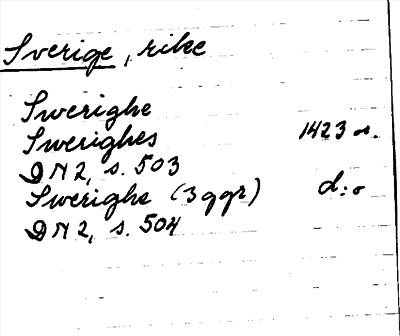 Sverige, rike
Swerighe
Swerighes 1423 o.
DN 2, s. 503
Swerighe (3 ggr) d:o
DN 2, s. 504